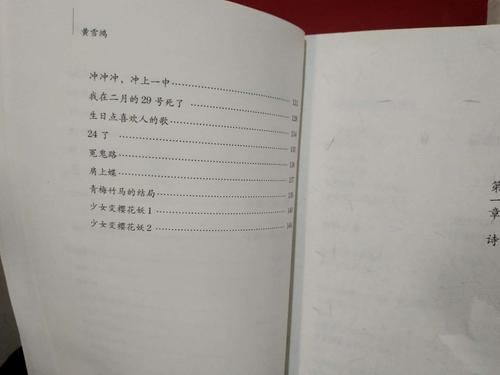 黄雪鸿
冲冲冲，冲上一中
我在二月的29号死了
生日点喜欢人的歌
24了
冤鬼路
肩上蝶
青梅竹马的结局
少女变樱花妖1
少女变樱花妖2
第一章 诗